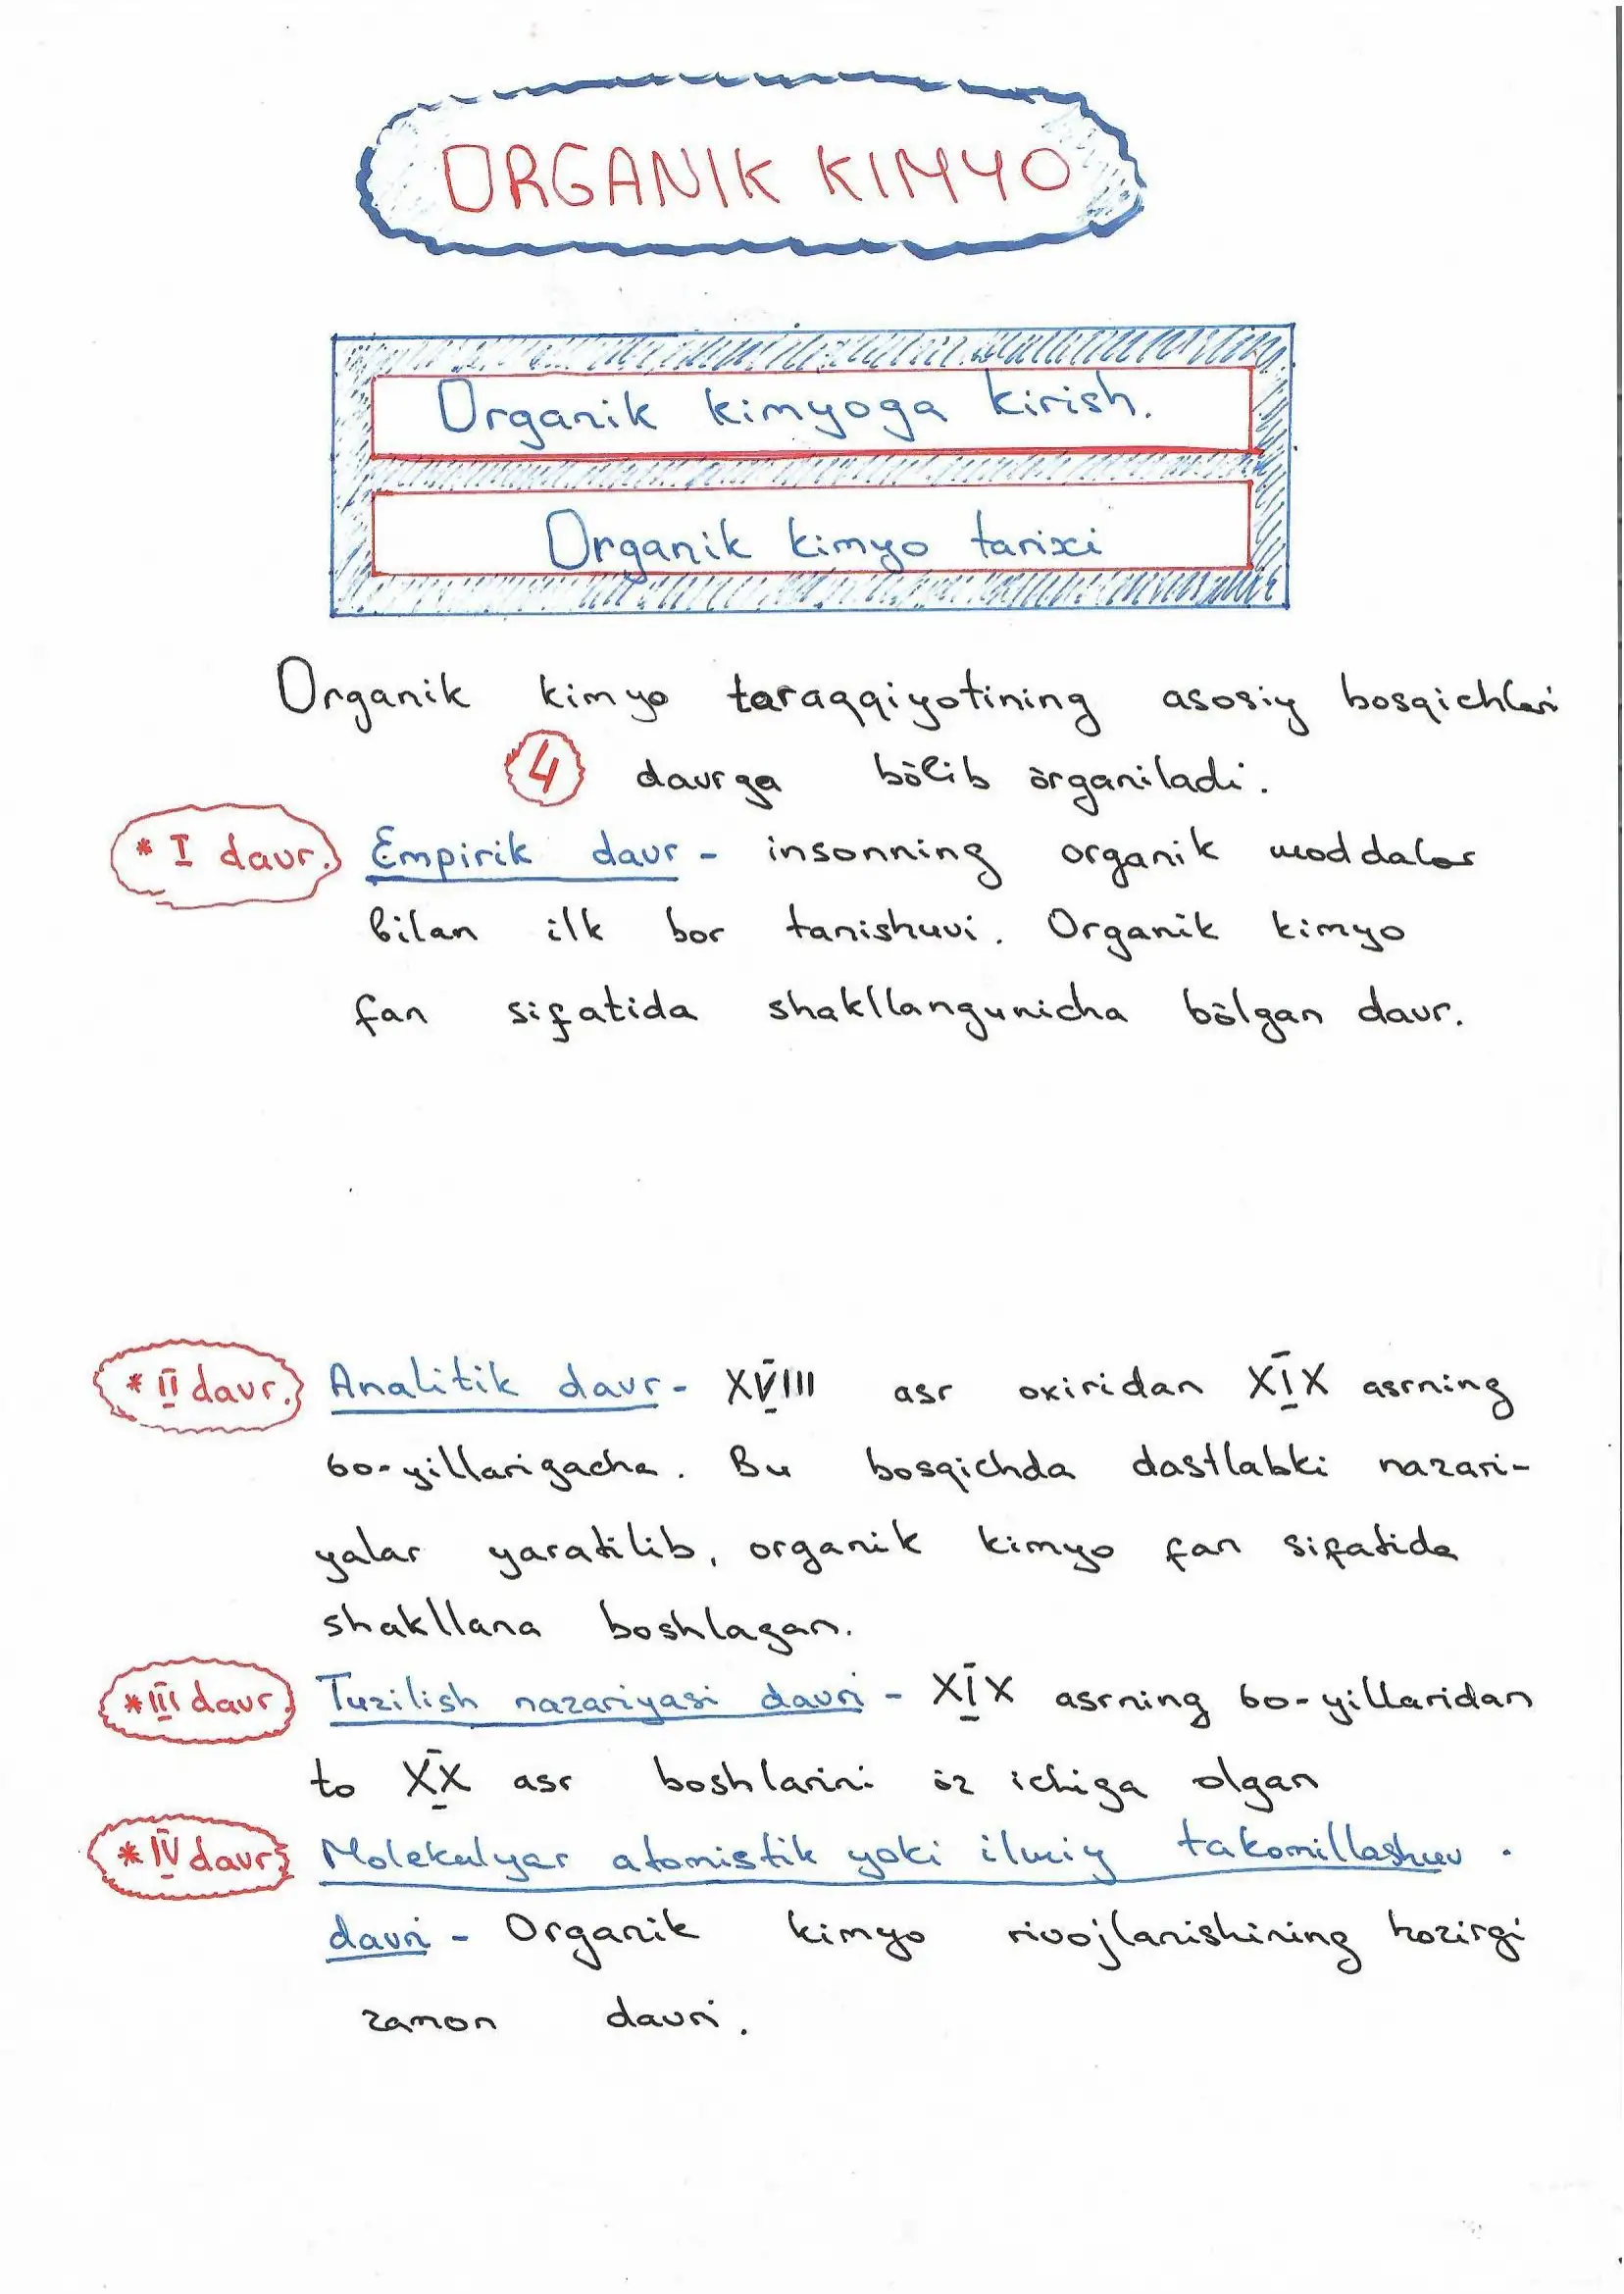 ORGANIK KIMYO
Organik kimyoga kirish.
Organik kimyo tarixi
Organik kimyo taraqqiyotining asosiy bosqichlari
4 davrga bōlib ōrganiladi.
* I davr. Empirik davr - insonning organik moddalar
bilan ilk bor tanishuvi. Organik kimyo
fan sifatida shakllangunicha bōlgan davr.
* II davr. Analitik davr - XVIII asr oxiridan XIX asrning
60-yillarigacha. Bu bosqichda dastlabki nazari-
yalar yaratilib, organik kimyo fan sifatida
shakllana boshlagan.
* III davr Tuzilish nazariyasi davri - XIX asrning 60-yillaridan
to XX asr boshlarini ōz ichiga olgan
* IV davr Molekulyar atomistik yoki ilmiy takomillashuv
davri - Organik kimyo rivojlanishining hozirgi
zamon davri.